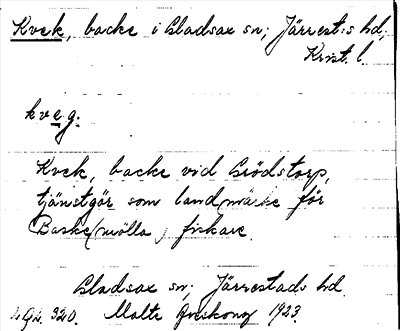 Kvek, backe i Gladsax sn; Järrest:s hd;
Krist. l.
kveg.
Kvek, backe vid Grödstorp,
tjänstgör som landmärke för
Baske(mölla) fiskare.
Gladsax sn; Järrestads hd.
320. Malte 1923.